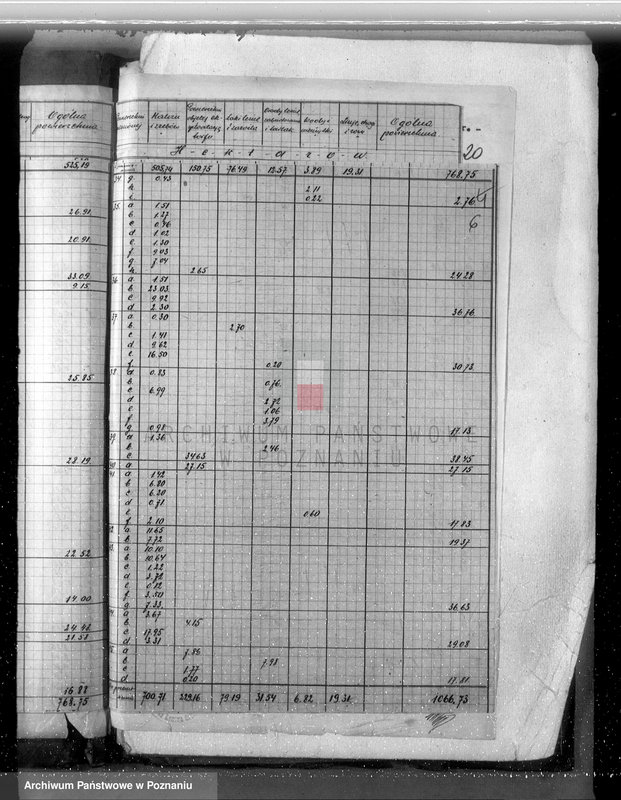 Ogólna
powierzchnia
Halizn
i zrębów
Łąki leśne
i zarosła
Ogólna
powierzchnia
H-e-k-t-a-r-ó-w
20
525,19 505,14 150.75 76.49 12.57 3.89 19.31 768.75
34 g 0.43
h 2.11
i 0.22 2.76
6
35 a 1.51
26.91 b 1.27
c 0.46
d 1.02
20.91 e 1.30
f 9.93
g 7.04
33.09 h 2.65 24.28
9.15 36 a 1.51
b 23.03
c 9.92
d 2.30 36.76
37 a 0.30
b 2.70
c 1.41
d 9.62
e 16.50
f 0.20 30.73
25.85 38 a 0.83
b 0.76
c 6.99
d 2.72
e 1.06
f 3.79
g 0.98 17.13
39 a 1.36
b 2.46
28.19 c 34.63 38.45
40 a 27.15 27.15
41 a 1.42
b 6.80
c 6.20
d 0.71
e 0.60
f 2.10 17.83
a 11.65
b 7.72 19.37
22.52 a 10.10
b 10.64
c 1.22
d 3.72
e 0.12
f 3.50
14.00 g 7.33 36.63
a 3.67
24.48 b 4.15
21.58 c 17.95
d 3.31 29.08
a 7.86
b 7.98
c 1.77
16.88 d 0.20 17.81
768.75 700.71 229.16 79.19 31.54 6.82 19.31 1066.73
ARCHIWUM PAŃSTWOWE
W POZNANIU
Archiwum Państwowe w Poznaniu